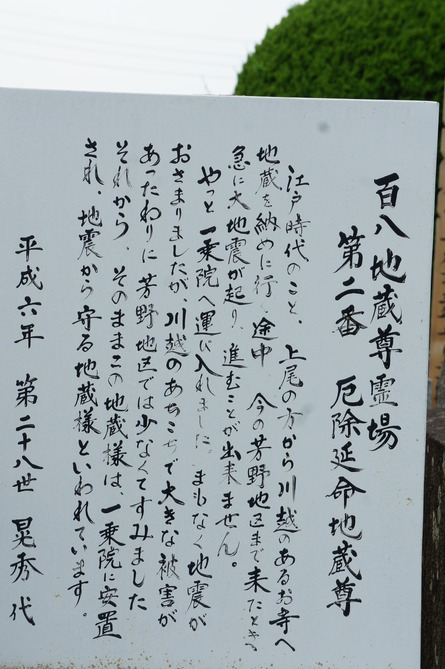 百八地蔵尊霊場
第二番 厄除延命地蔵尊
江戸時代のこと、上尾の方から川越のあるお寺へ
地蔵を納めに行く途中 今の芳野地区まで来たとき
急に大地震が起り、進むことが出来ません。
やっと一乗院へ運び入れました。まもなく地震が
おさまりましたが、川越のあちこちで大きな被害が
あったわりに芳野地区では少なくてすみました
それから、そのままこの地蔵様は、一乗院に安置
され、地震から守る地蔵様といわれています。
平成六年 第二十八世 晃秀代